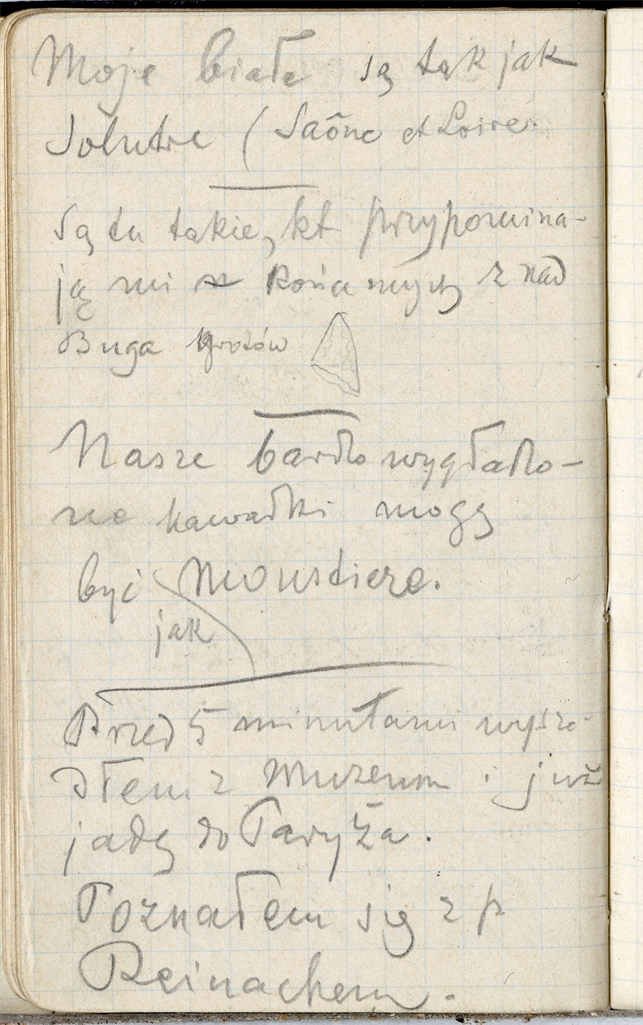 Moje białe są tak jak
Solutre (Saône et Loire
Są tu takie, kt przypomina-
ją mi z nad
Buga grotów
Nasze bardzo wygładzo-
ne kawałki mogą
być Moustiere.
jak
Przed 5 minutami wysze-
dłem z Muzeum i już
jadę do Paryża.
Poznałem się z p
Reinachem.